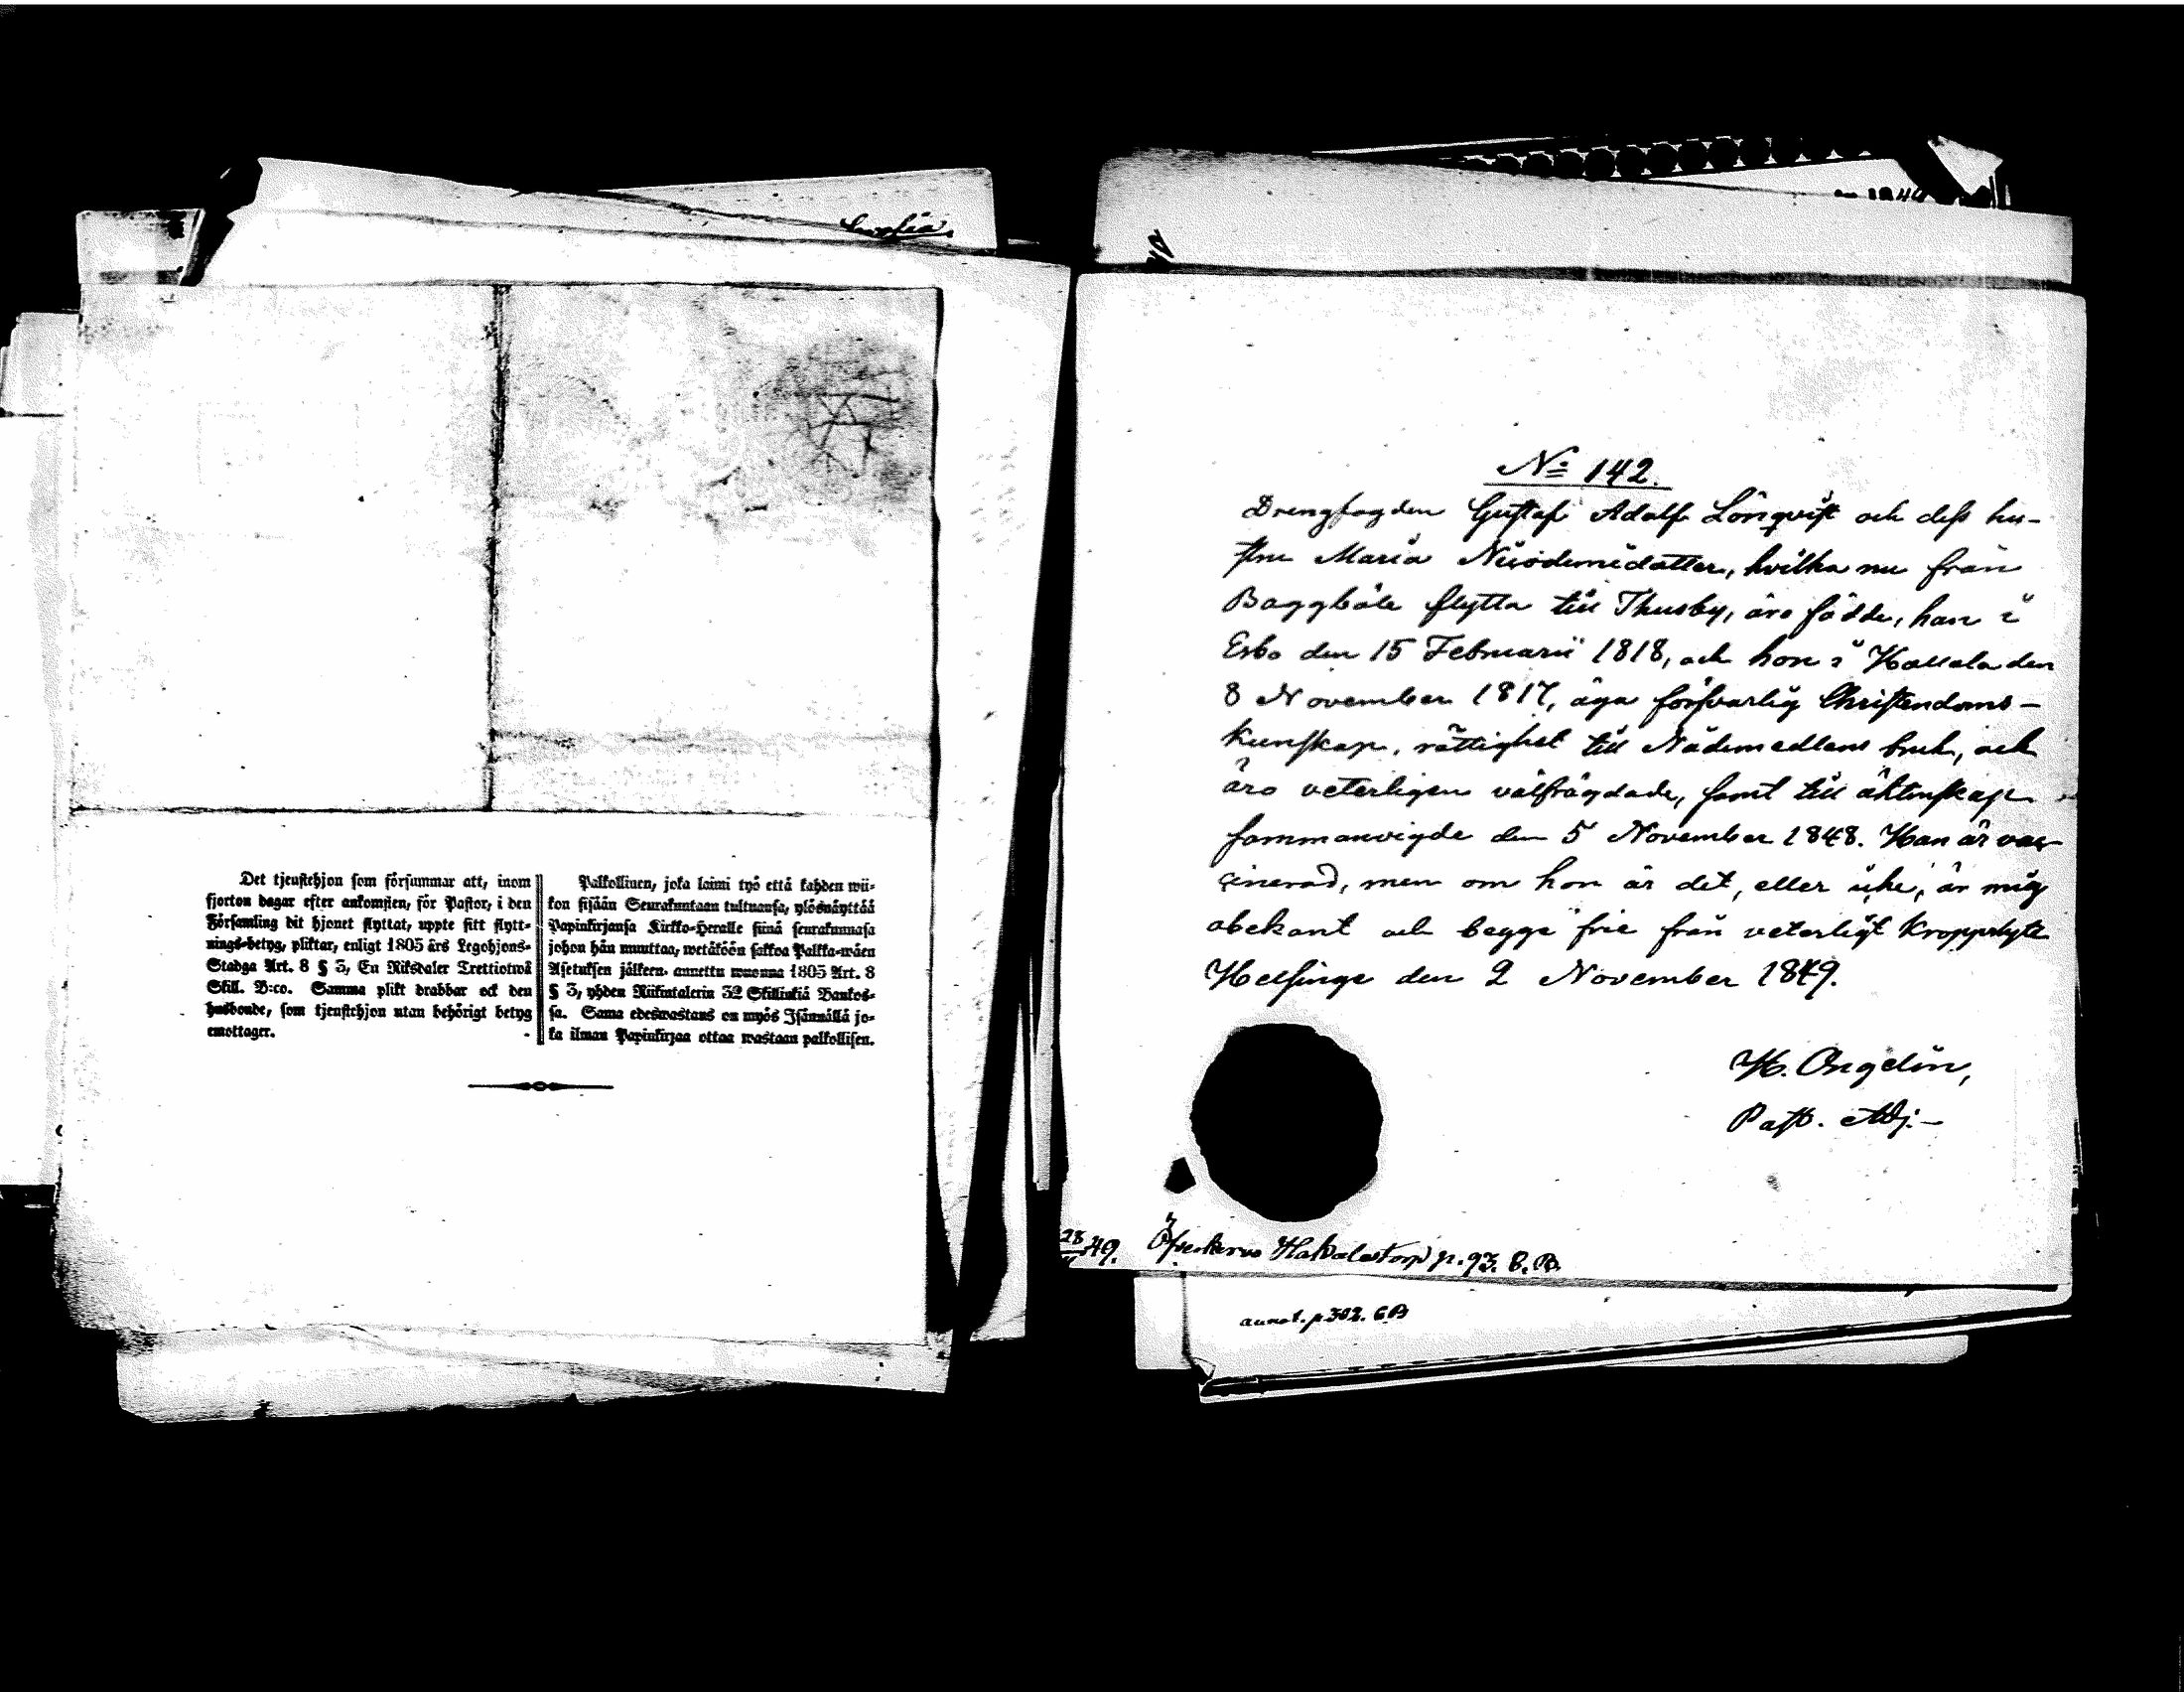 Det tjenstehjon som försummar att, inom
fjorton dagar efter ankomsten, för Pastor, i den
Församling dit hjonet flyttat, uppte sitt flytt-
nings-betyg, pliktar, enligt 1805 års Legohjons-
Stadga Art. 8 § 3, En Riksdaler Trettiotwå
Skill. B:co. Samma plikt drabbar ock den
husbonde, som tjenstehjon utan behörigt betyg
emottager.
Palkollinen, joka laimi lyö että kahden wii-
kon sisään Seurakuntaan tultuansa, ylösnäyttää
Papinkirjansa Kirkko-Herralle siinä seurakunnasa
johon hän muuttaa, wetäköön sakkoa Palkka-wäen
Asetuksen jälkeen, annettu wuonna 1805 Art. 8
§ 3, yhden Riikintalerin 32 Skillinkiä Bankos-
sa. Sama edeswastaus on myös Isännällä jo-
ka ilman Papinkirjaa ottaa wastaan palkollisen.
No 142.
Drengfogden Gustaf Adolf Lönqvist och dess hu-
stru Maria Nicodemidotter, hvilka nu från
Baggböle flytta till Thusby, äro födde, han i
Esbo den 15 Februarii 1818, och hon i Hollola den
8 November 1817, äga försvarlig Christendoms-
kunskap, rättighet till Nådemedlens bruk, och
äro veterligen välfrägdade, samt till äktenskap
sammanvigde den 5 November 1848. Han är vac-
cinerad, men om hon är det, eller icke, är mig
obekant och begge frie från veterligt kroppslyte
Helsinge den 2 November 1849.
H. Ongelin,
Past. Adj.-
28/11 49. Öfverkervo Hakalastorp p. 93. C. B.
annot. p. 302. C.B